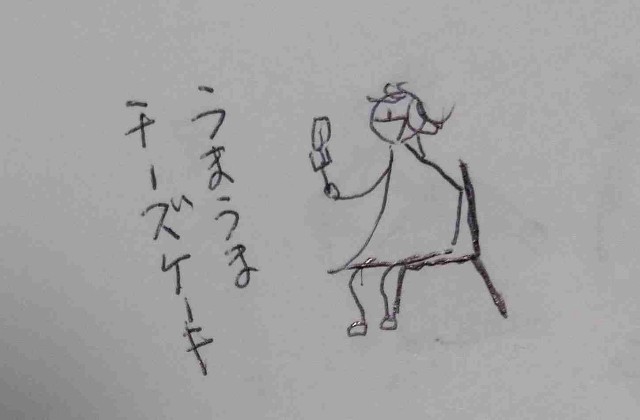 うまうま
チーズケーキ